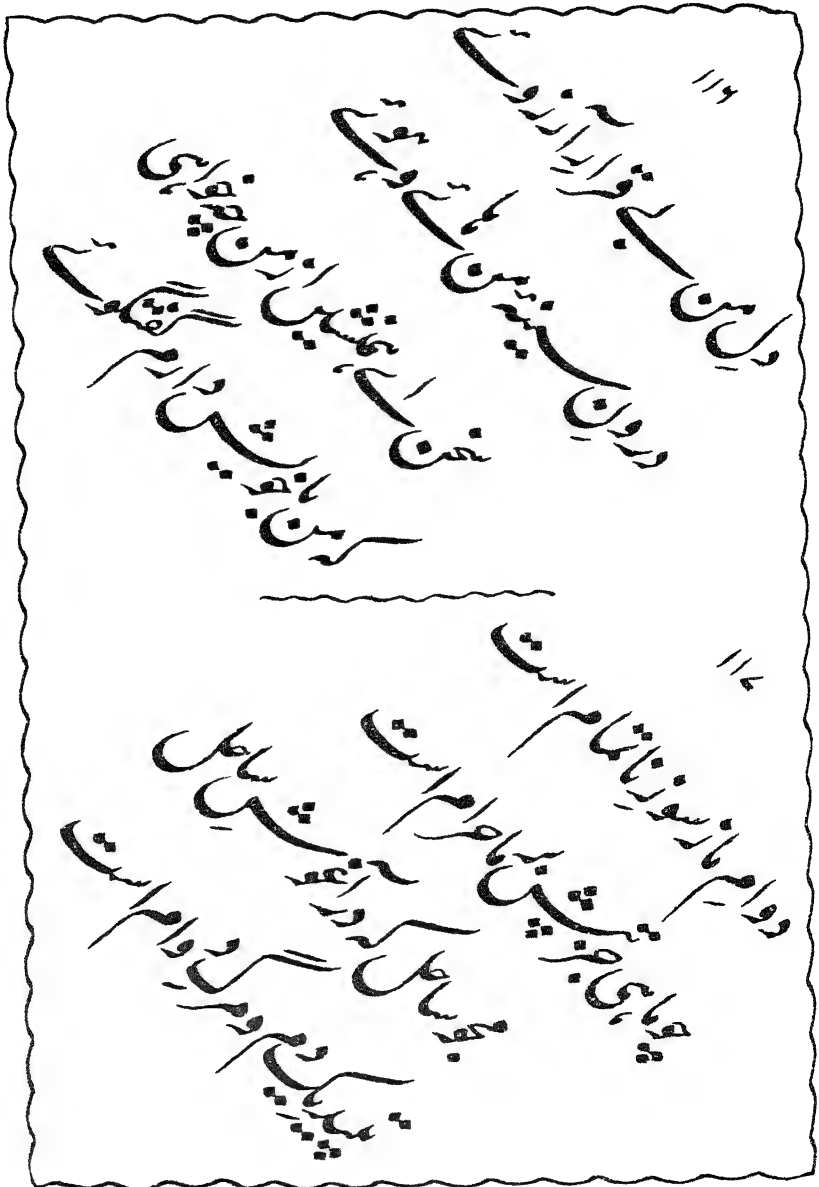 ۱۱۶
دلِ من بے قرارِ آرزوئے
درونِ سینۂ من ہائے و ہوئے
سخن اے ہمنشیں از من چہ خواہی
کہ من با خویش دارم گفتگوئے
۱۱۷
دوامِ ما ز سوزِ ناتمام است
چو ماہی جز تپش بر ما حرام است
مجو ساحل کہ در آغوشِ ساحل
تپیدِ یک دم و مرگِ دوام است